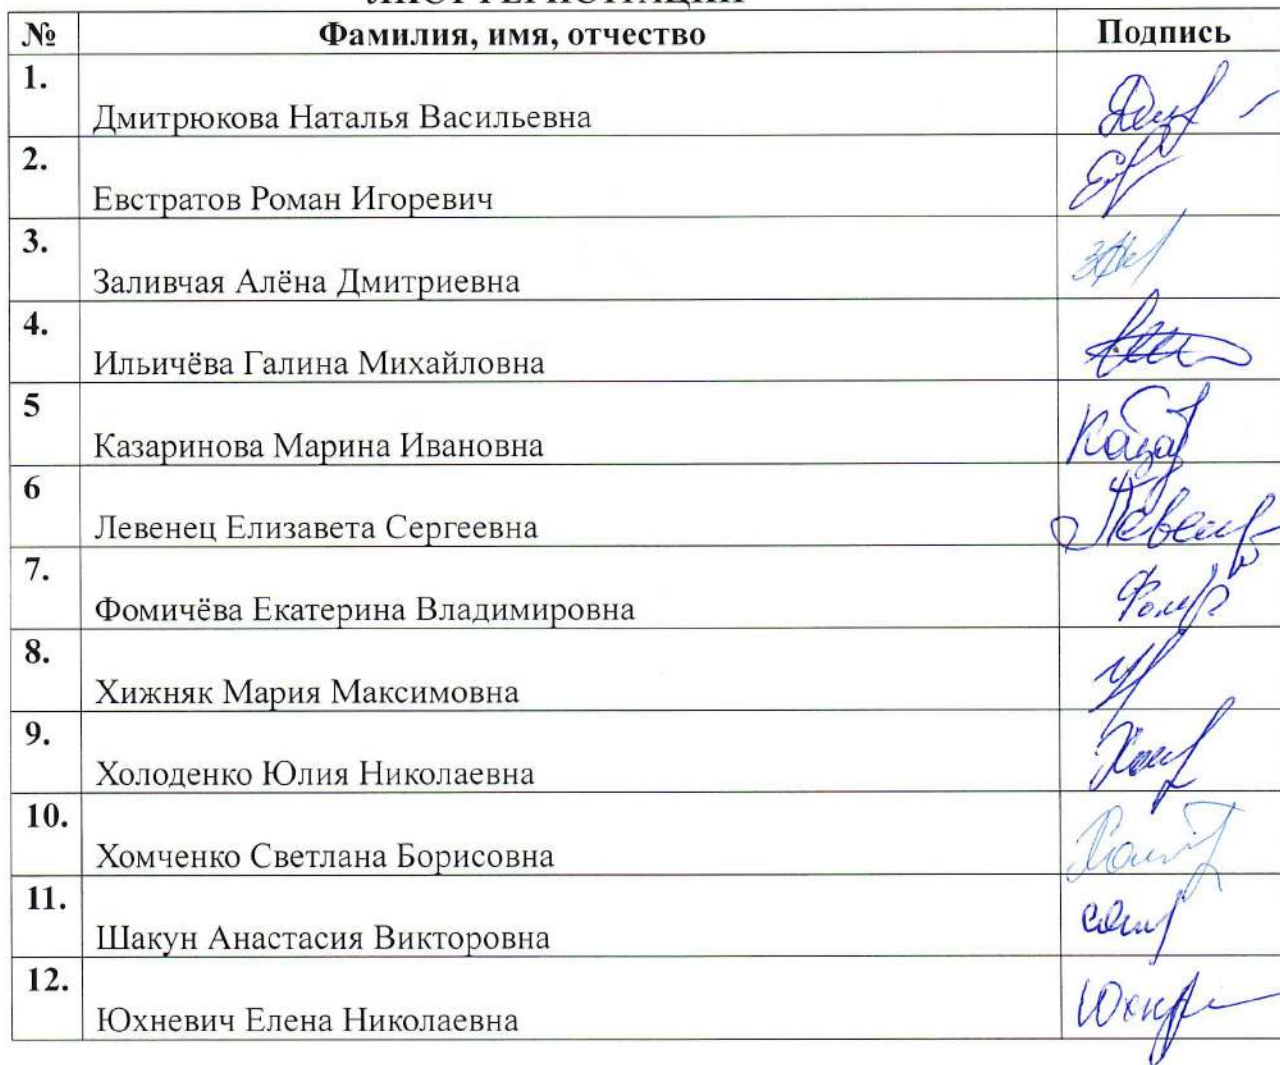 ЛИСТ РЕГИСТРАЦИИ
№ Фамилия, имя, отчество Подпись
1. Дмитрюкова Наталья Васильевна
2. Евстратов Роман Игоревич
3. Заливчая Алёна Дмитриевна
4. Ильичёва Галина Михайловна
5 Казаринова Марина Ивановна
6 Левенец Елизавета Сергеевна
7. Фомичёва Екатерина Владимировна
8. Хижняк Мария Максимовна
9. Холоденко Юлия Николаевна
10. Хомченко Светлана Борисовна
11. Шакун Анастасия Викторовна
12. Юхневич Елена Николаевна